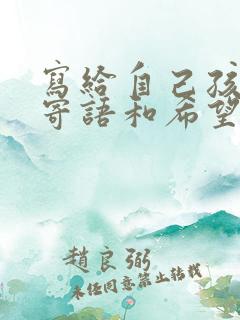 寫給自己孩
寄語和希望
趙良弼
未经同意禁止转载